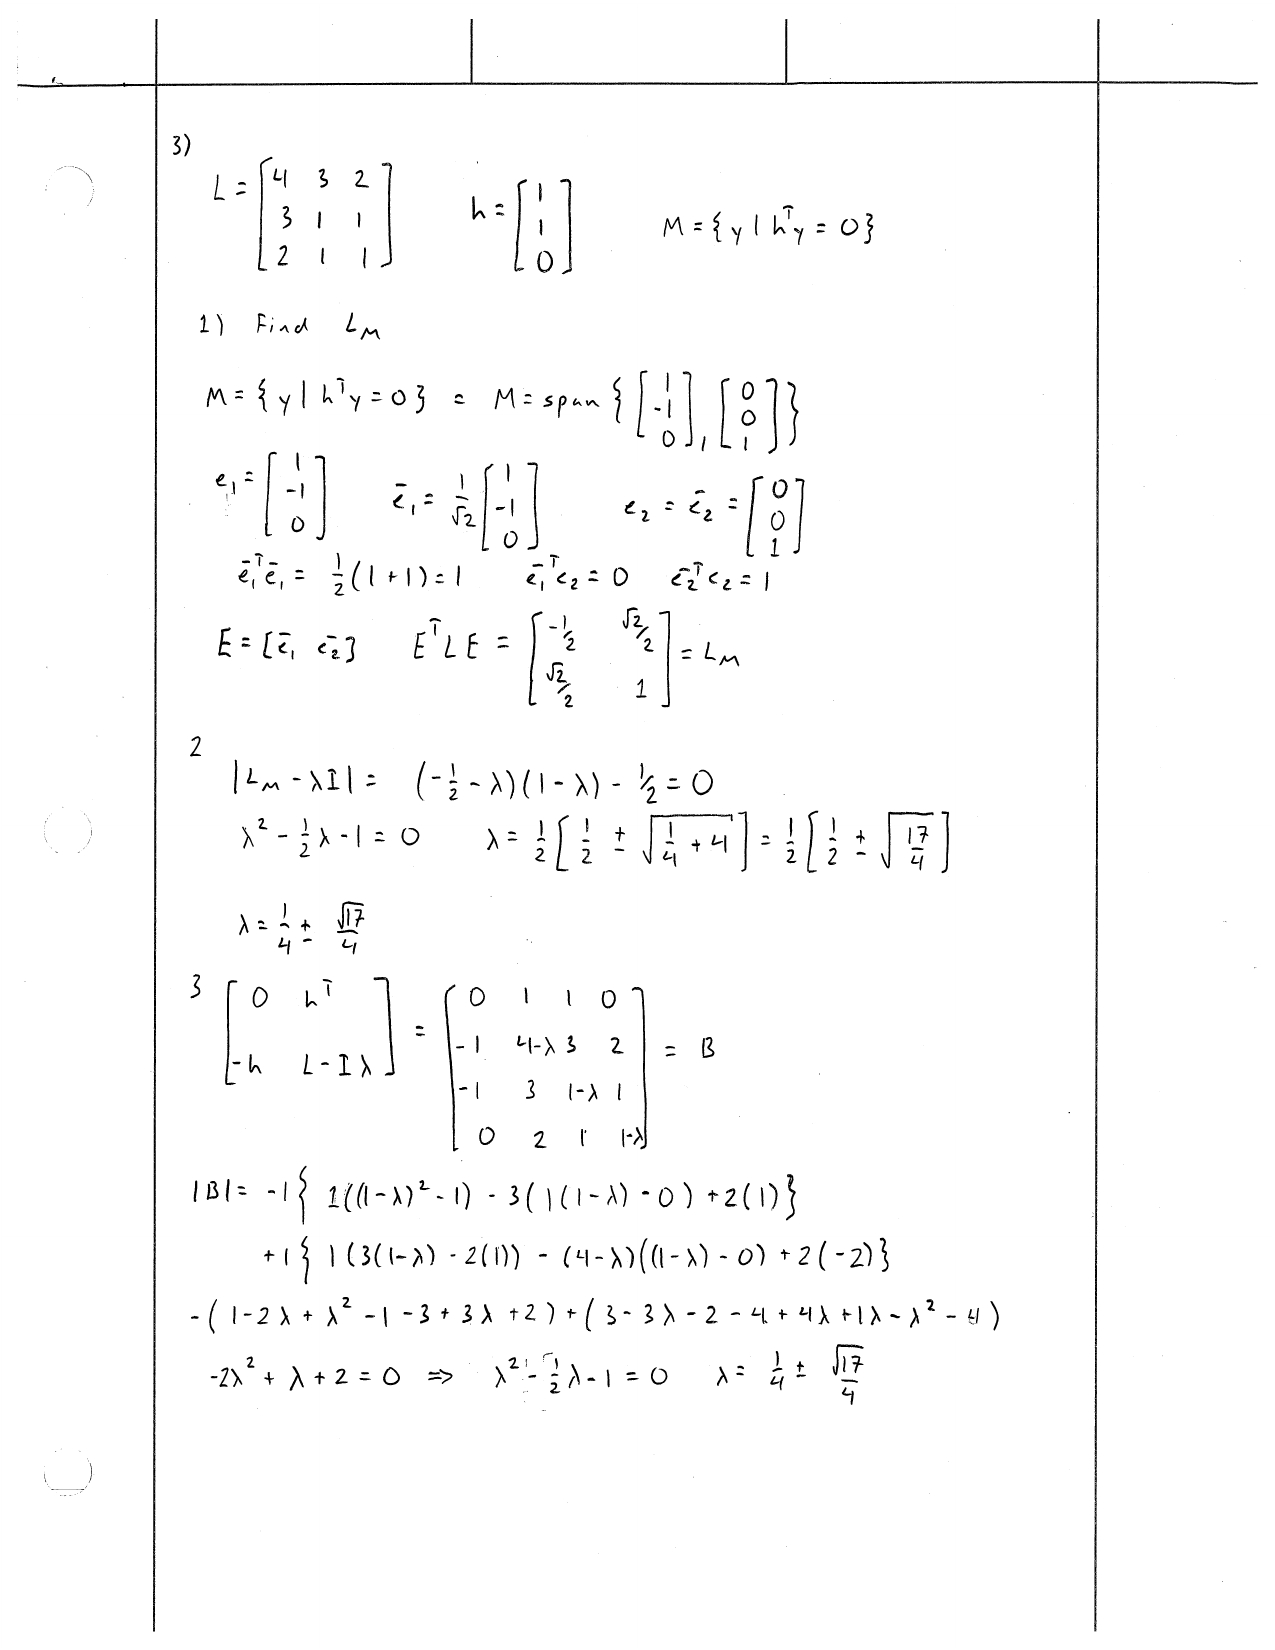 3)
L = [4 3 2; 3 1 1; 2 1 1] h = [1; 1; 0] M = {y | hᵀy = 0}
1) Find L_M
M = {y | hᵀy = 0} = M = span {[1; -1; 0], [0; 0; 1]}
e₁ = [1; -1; 0] ē₁ = 1/√2 [1; -1; 0] e₂ = ē₂ = [0; 0; 1]
ē₁ᵀē₁ = 1/2 (1 + 1) = 1 ē₁ᵀe₂ = 0 ē₂ᵀe₂ = 1
E = [ē₁ ē₂] EᵀLE = [-1/2 √2/2; √2/2 1] = L_M
2
|L_M - λI| = (-1/2 - λ)(1 - λ) - 1/2 = 0
λ² - 1/2 λ - 1 = 0 λ = 1/2 [1/2 ± √(1/4 + 4)] = 1/2 [1/2 ± √(17/4)]
λ = 1/4 ± √17/4
3 [0 hᵀ; -h L - Iλ] = [0 1 1 0; -1 4-λ 3 2; -1 3 1-λ 1; 0 2 1 1-λ] = B
|B| = -1{ 1((1-λ)² - 1) - 3(1(1-λ) - 0) + 2(1)}
+1{ 1(3(1-λ) - 2(1)) - (4-λ)((1-λ) - 0) + 2(-2)}
-(1 - 2λ + λ² - 1 - 3 + 3λ + 2) + (3 - 3λ - 2 - 4 + 4λ + 1λ - λ² - 4)
-2λ² + λ + 2 = 0 => λ² - 1/2 λ - 1 = 0 λ = 1/4 ± √17/4